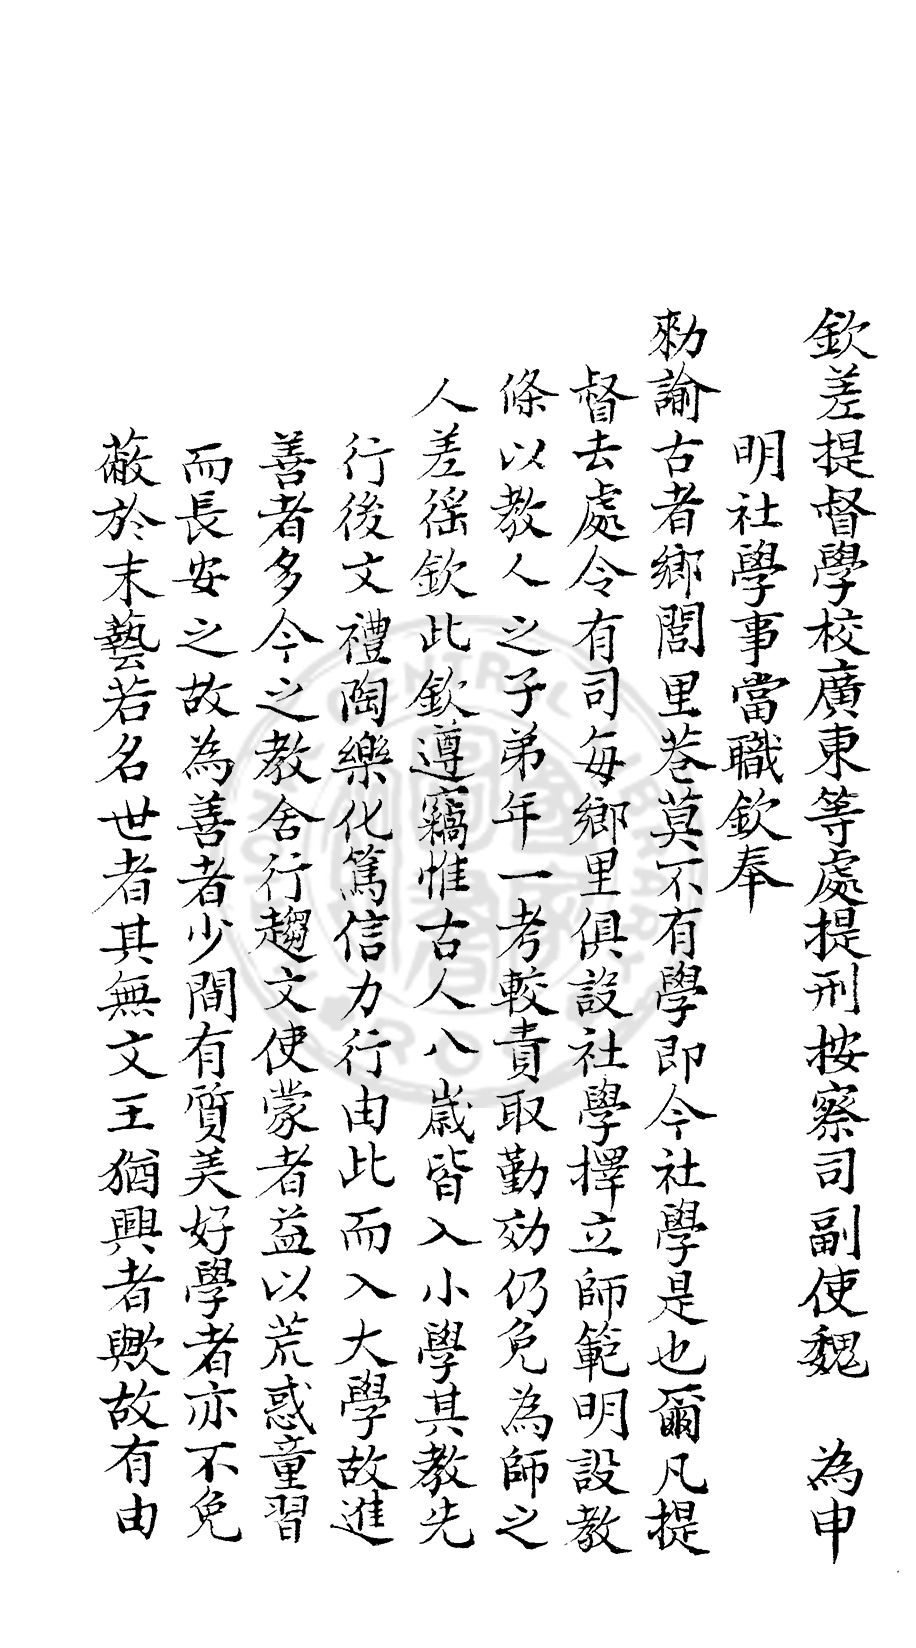 欽差提督學校廣東等處提刑按察司副使魏　為申
明社學事當職欽奉
勑諭古者鄉閭里巷莫不有學即今社學是也爾凡提
督去處令有司每鄉里俱設社學擇立師範明設教
條以教人之子弟年一考較責取勤効仍免為師之
人差徭欽此欽遵竊惟古人八歲皆入小學其教先
行後文禮陶樂化篤信力行由此而入大學故進
善者多今之教舍行趨文使蒙者益以荒惑童習
而長安之故為善者少間有質美好學者亦不免
蔽於末藝若名世者其無文王猶興者歟故有由